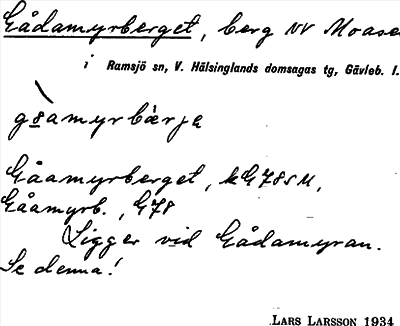 Gådamyrberget, berg NV Moasen
i Ramsjö sn, V. Hälsinglands domsagas tg, Gävleb. l.
gåamyrbärjɐ
Gåamyrberget, kG78SM,
Gåamyrb., G78
Ligger vid Gådamyran.
Se denna!
LARS LARSSON 1934